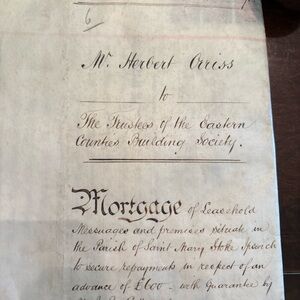 6
Mr. Herbert Orriss
to
The Trustees of the Eastern
Counties Building Society.
Mortgage of Leasehold
Messuages and premises situate in
the Parish of Saint Mary Stoke Ipswich
to secure repayments in respect of an
advance of £600 - with Guarantee by